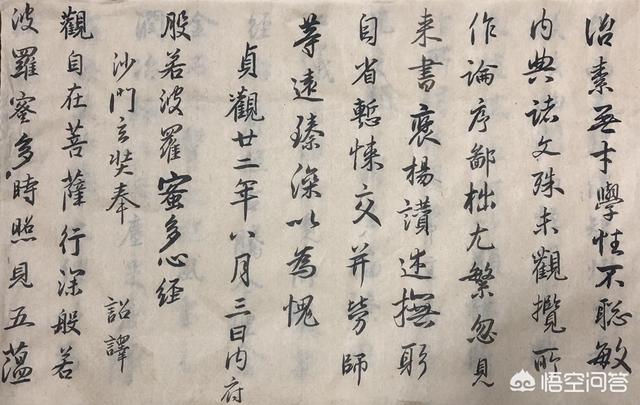 治素無才學性不聰敏
内典諸文殊未觀攬所
作論序鄙拙尤繁忽見
来書褒揚讚述撫躬
自省慙悚交并勞師
等遠臻深以為愧
貞觀廿二年八月三日内府
般若波羅蜜多心経
沙門玄奘奉 詔譯
觀自在菩薩行深般若
波羅蜜多時照見五蕴
悟空问答